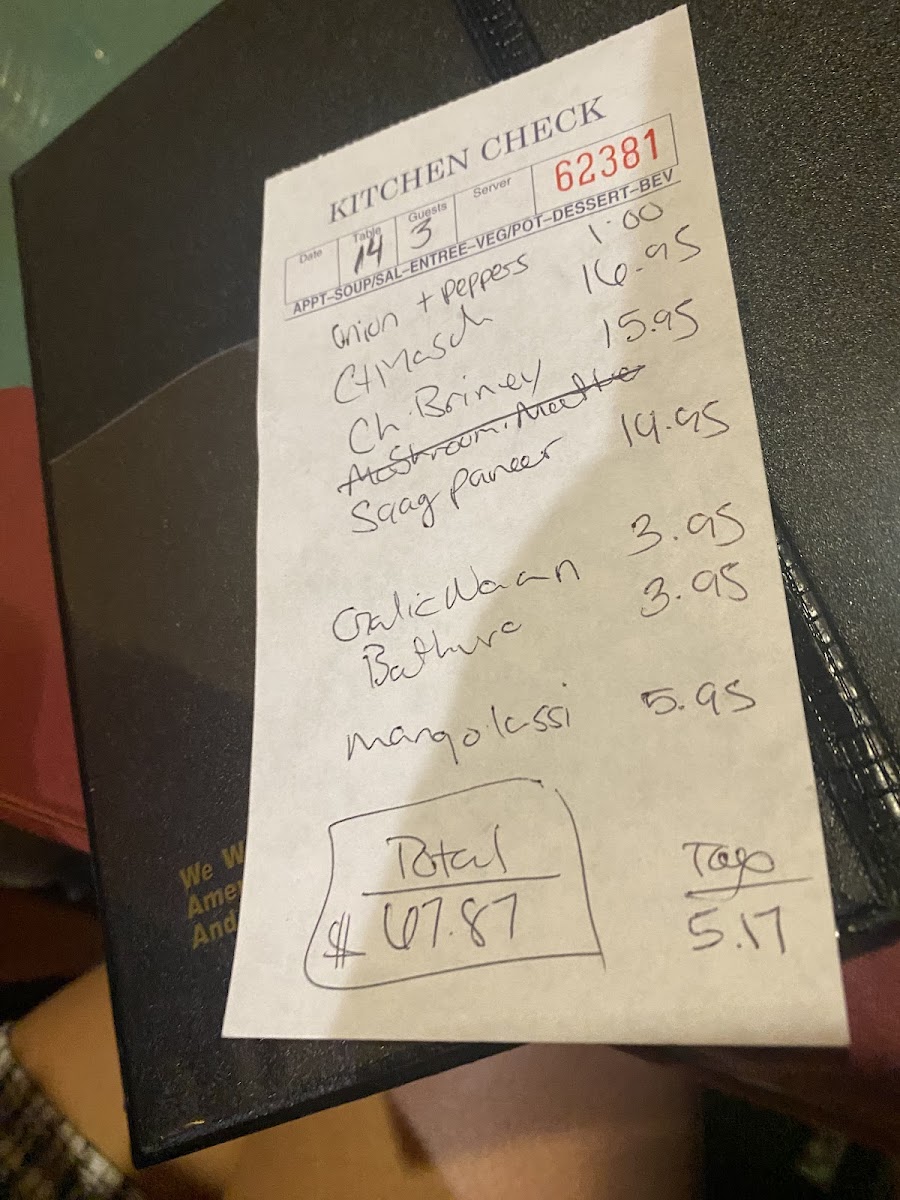 KITCHEN CHECK
Date Table Guests Server 62381
14 3
APPT-SOUP/SAL-ENTREE-VEG/POT-DESSERT-BEV
onion + peppers 1.00
Ct Masala 16.95
Ch. Briney 15.95
Mushroom. Matter
Saag paneer 14.95
Galic Naan 3.95
Bathura 3.95
mango lassi 5.95
Total
$ 67.87
Tax
5.17
We W
Ame
And